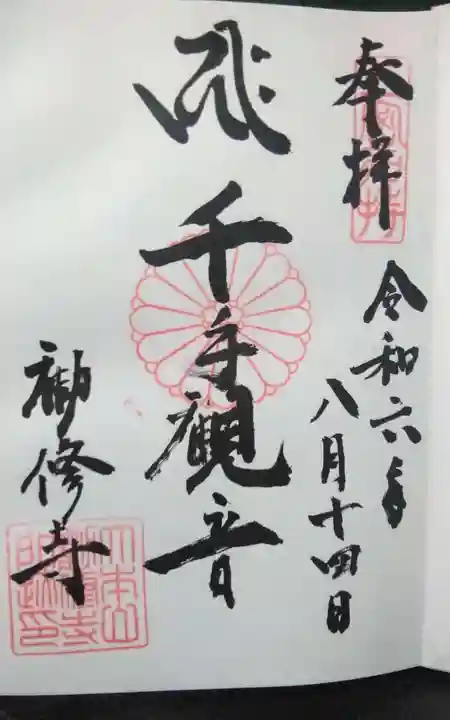 奉拝
令和六年
八月十四日
千手観音
勧修寺